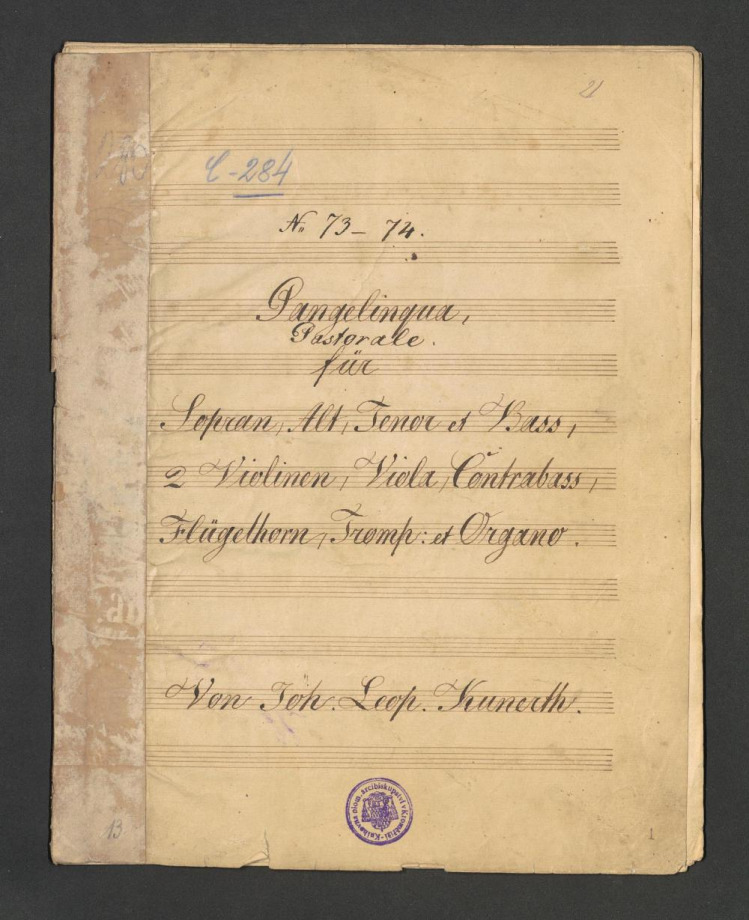 21
C-284
No 73-74.
Pangelingua,
Pastorale.
für
Sopran, Alt, Tenor et Bass,
2 Violinen, Viola, Contrabass,
Flügelhorn, Tromp: et Organo.
Von Joh. Leop. Kunerth.
Knihovna olom. arcibiskupství v Kroměříži
13
1